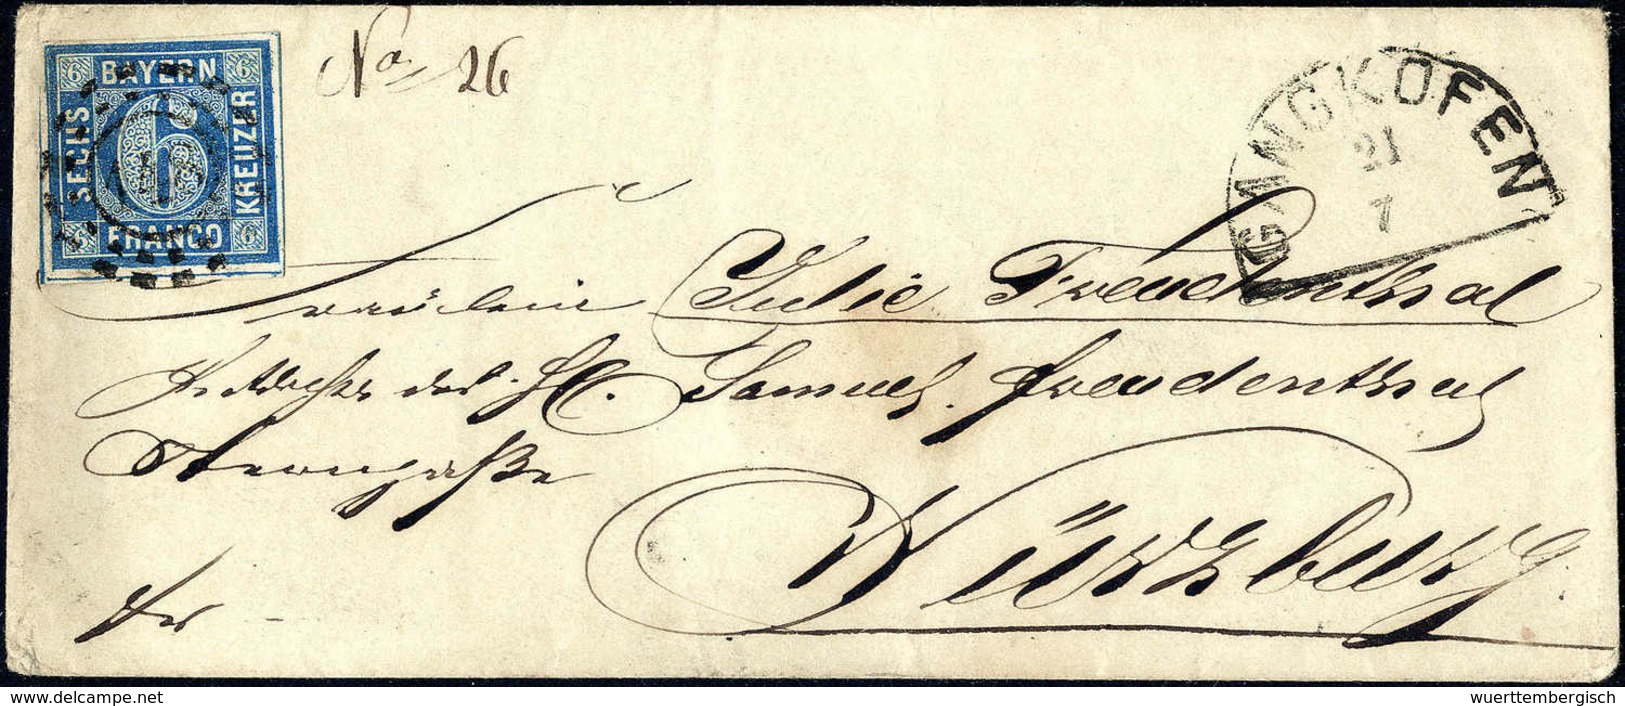 No 26
BAYERN
SECHS
6
KREUZER
FRANCO
6 6 6 6
GANGKOFEN
21
7
Fräulein Julie Freudenthal
der H. Samuel Freudenthal
Würzburg
delcampe.net
wuerttembergisch